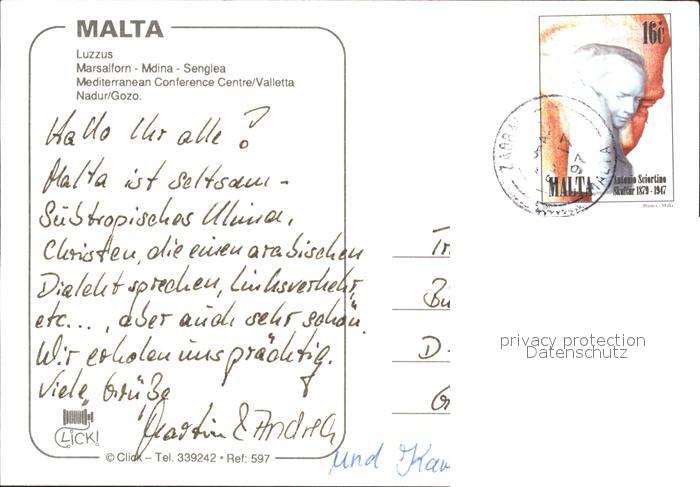 MALTA
Luzzus
Marsalforn - Mdina - Senglea
Mediterranean Conference Centre/Valletta
Nadur/Gozo.
Hallo Ihr alle!
Malta ist seltsam -
Subtropisches Klima,
Christen, die einen arabischen
Dialekt sprechen, Linksverkehr,
etc..., aber auch sehr schön.
Wir erholen uns prächtig.
Viele Grüße
Martin & Andrea
und
CLICK!
© Click – Tel. 339242 • Ref: 597
16c
MALTA
Antonio Sciortino
Skultur 1879 - 1947
Printex - Malta
MALTA
97
D-
privacy protection
Datenschutz